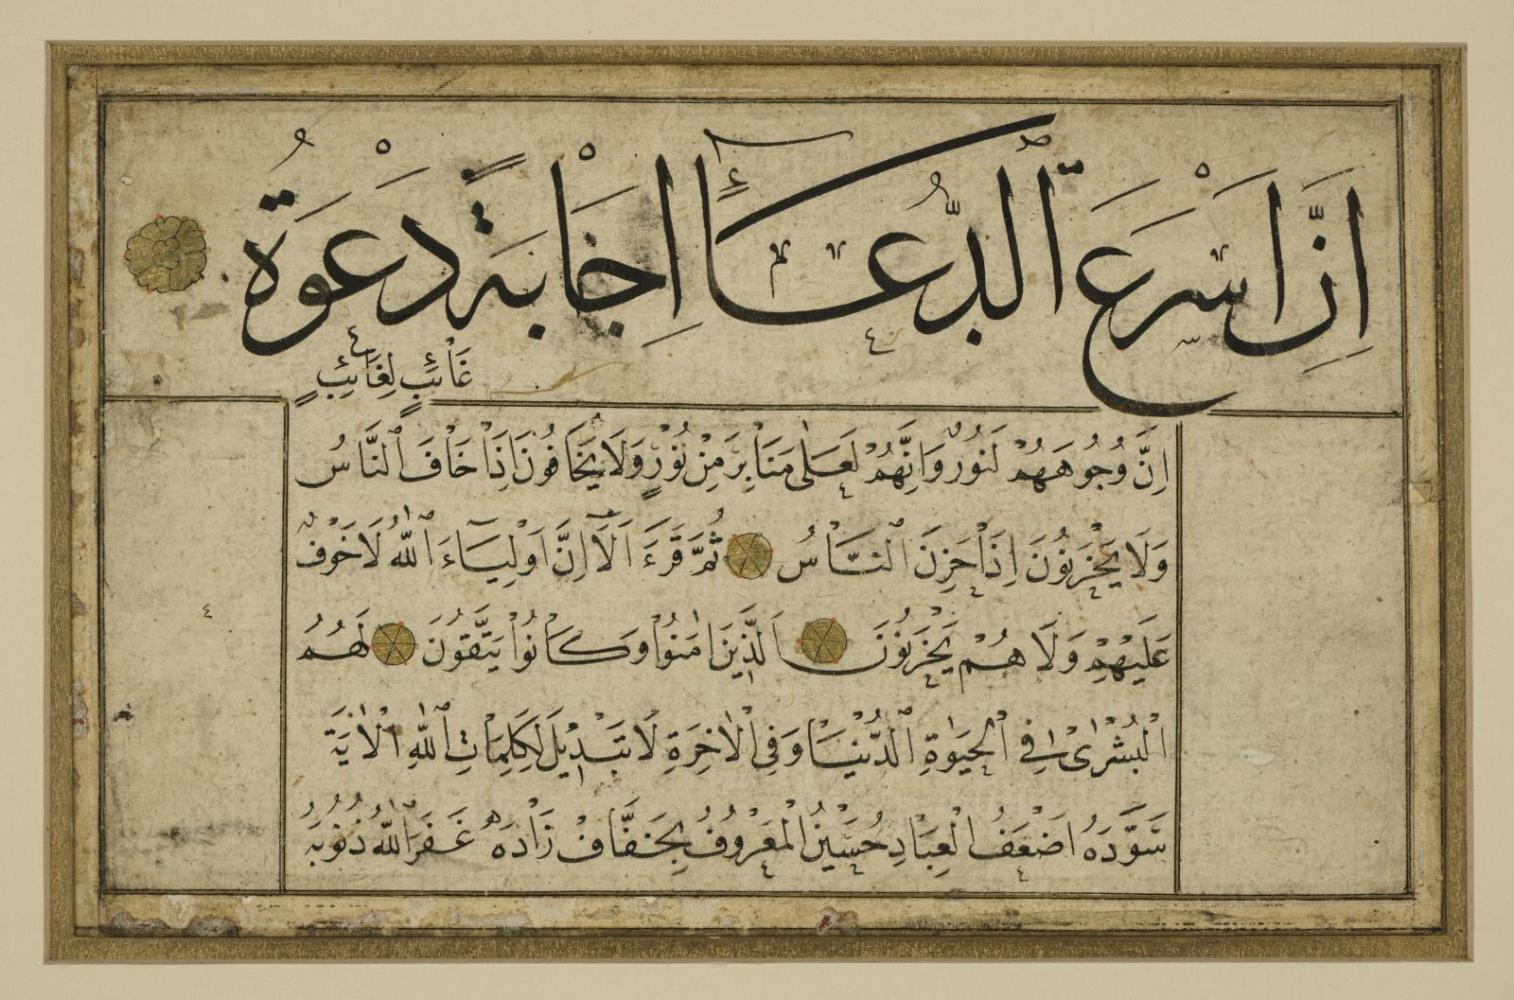 اِنَّ اَسْرَعَ ٱلدُّعَاۤءِ اِجَابَةً دَعْوَةُ
غَائِبٍ لِغَائِبٍ
اِنَّ وُجُوهَهُمْ لَنُورٌ وَاِنَّهُمْ لَعَلٰى مَنَابِرَ مِنْ نُوْرٍ وَلَا يَخَافُونَ اِذَا خَافَ ٱلنَّاسُ
وَلَا يَحْزَنُوْنَ اِذَا حَزِنَ ٱلنَّاسُ ثُمَّ قَرَءَ اَلَاۤ اِنَّ اَوْلِيَاۤءَ ٱللّٰهِ لَا خَوْفٌ
عَلَيْهِمْ وَلَا هُمْ يَحْزَنُوْنَ اَلَّذِينَ اٰمَنُوْا وَكَانُوْا يَتَّقُونَ لَهُمُ
الْبُشْرٰىْ فِي ٱلْحَيٰوةِ ٱلدُّنْيَا وَفِى ٱلْاٰخِرَةِ لَا تَبْدِيْلَ لِكَلِمَاتِ ٱللّٰهِ الْاٰيَةَ
سَوَّدَهُ اَضْعَفُ الْعِبَادِ حُسَيْنُ الْمَعْرُوفُ بِخَفَّافْ زَادَهْ غَفَرَ ٱللّٰهُ ذُنُوْبَهُ